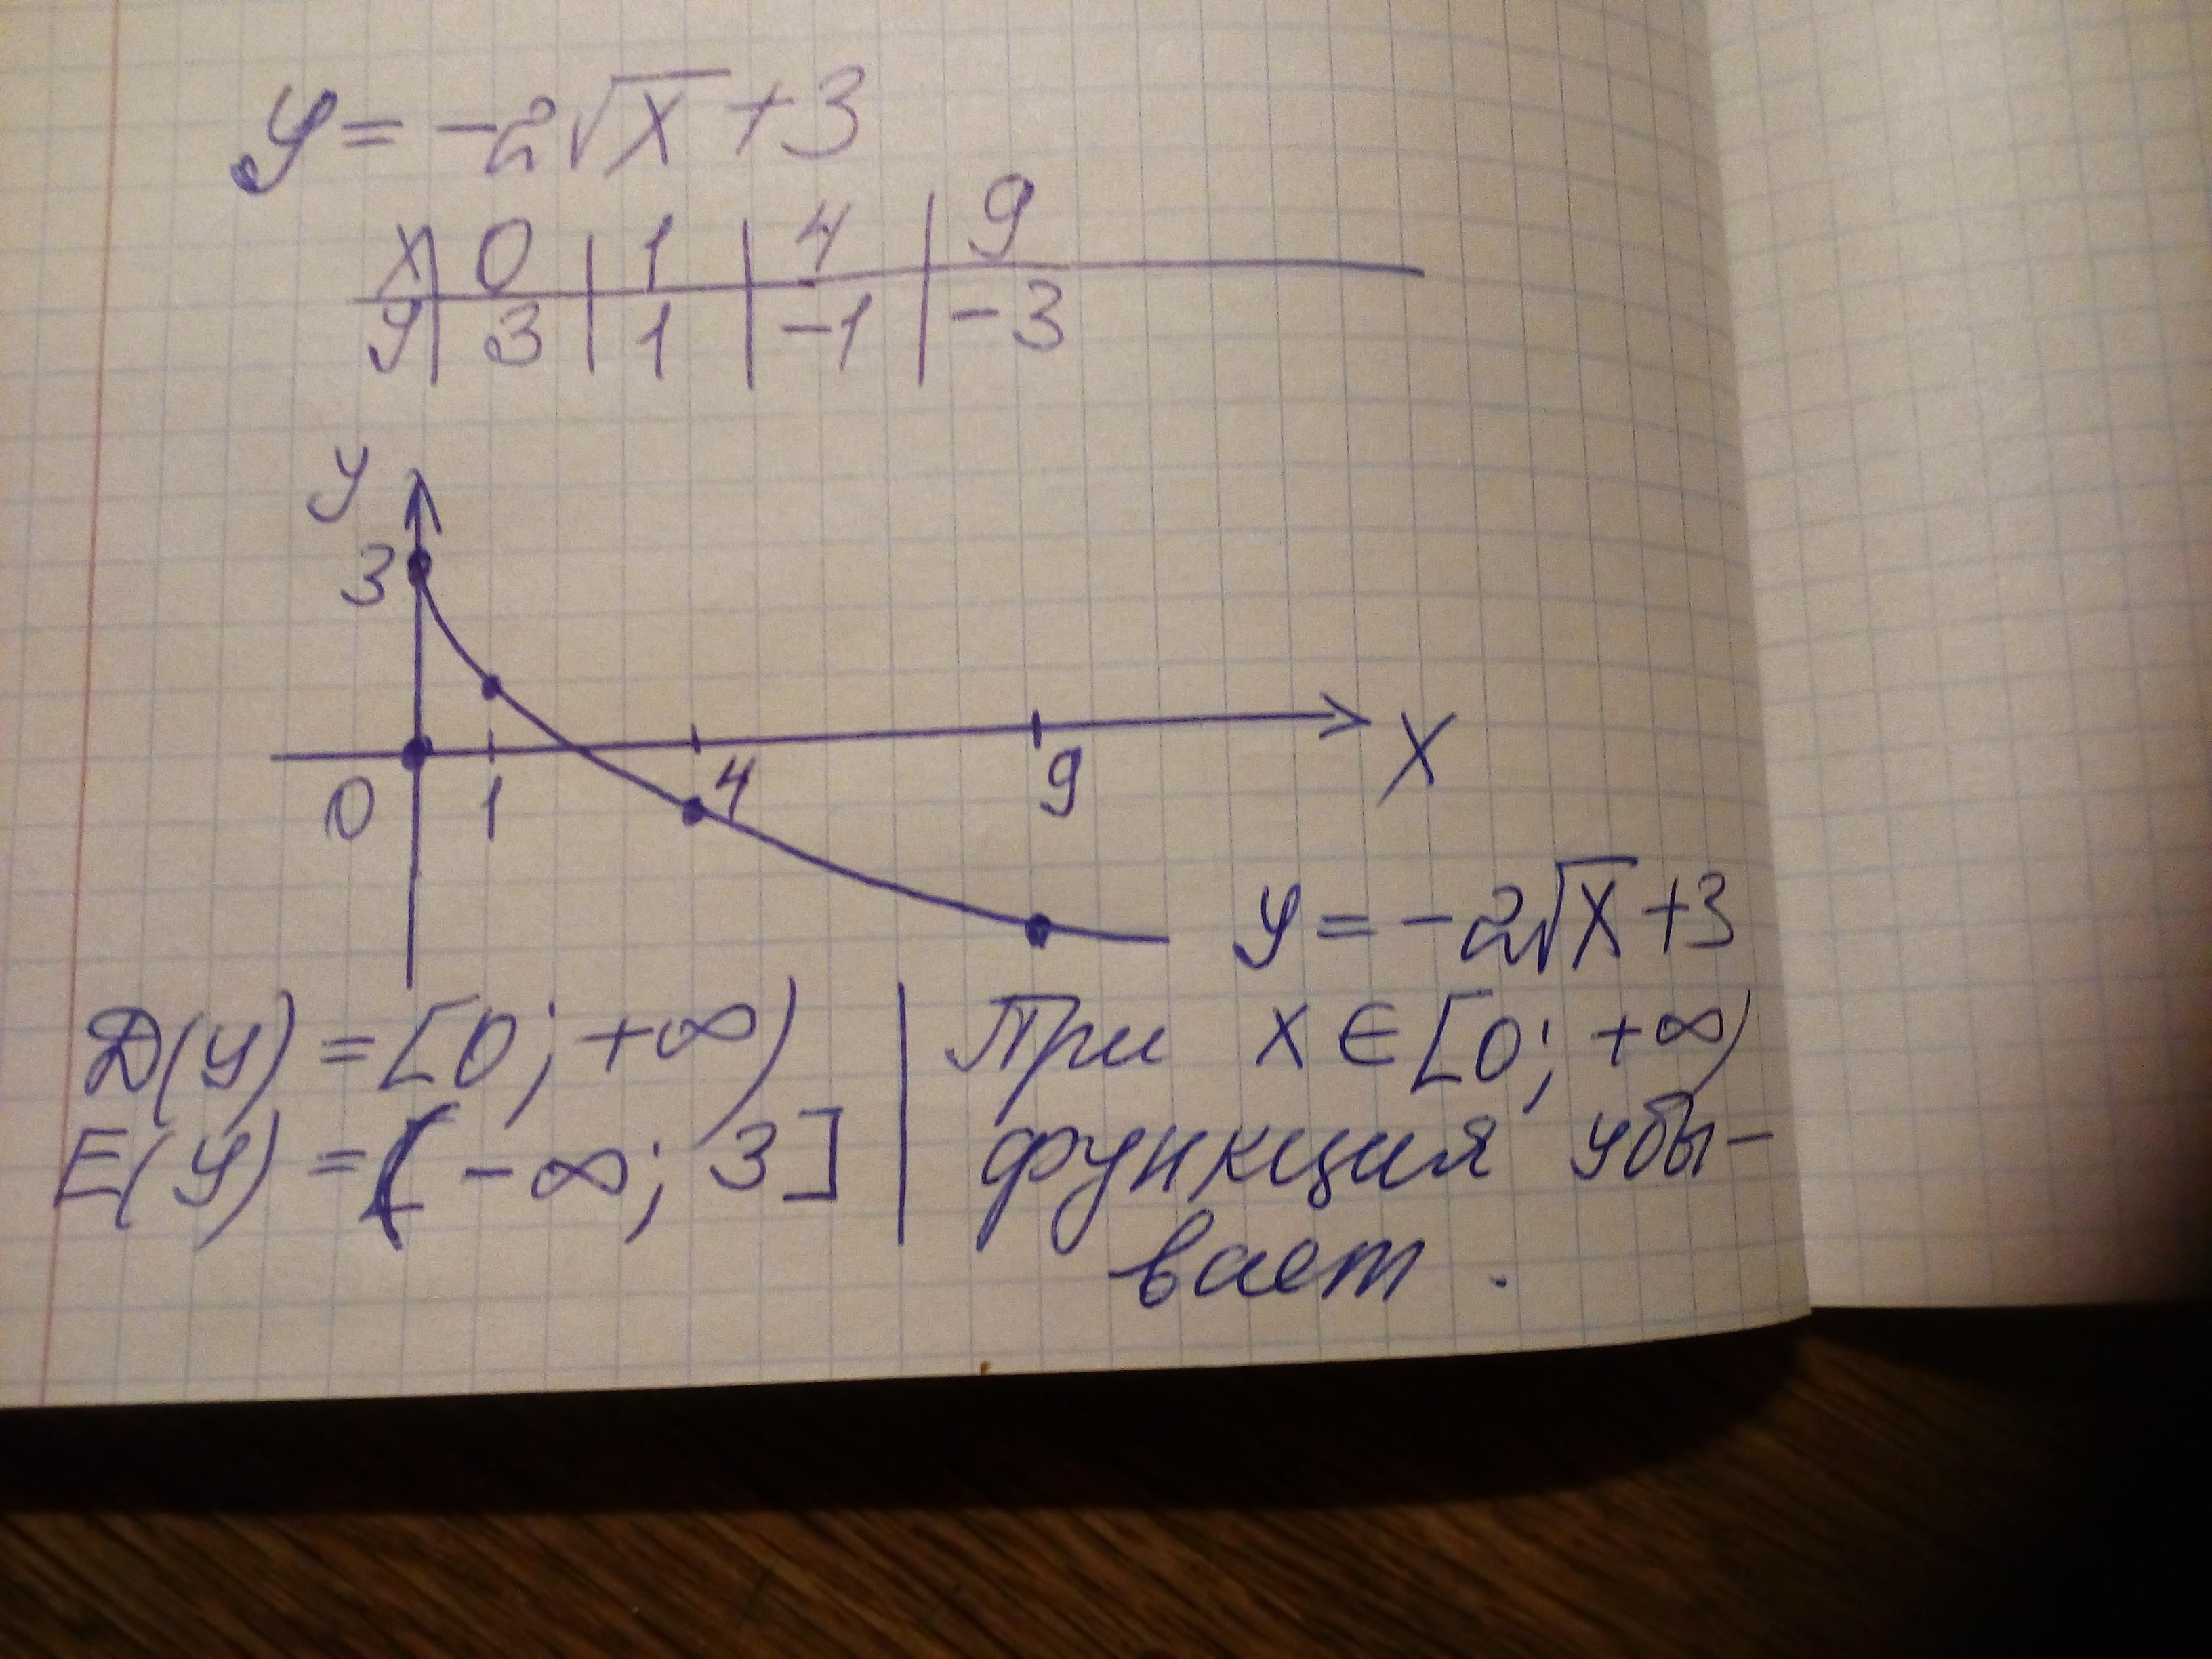 y = -2√x + 3
x | 0 | 1 | 4 | 9
y | 3 | 1 | -1 | -3
y
3
0 1 4 9 x
y = -2√x + 3
D(y) = [0; +∞) | При x ∈ [0; +∞)
E(y) = (-∞; 3] | функция убы-
вает.